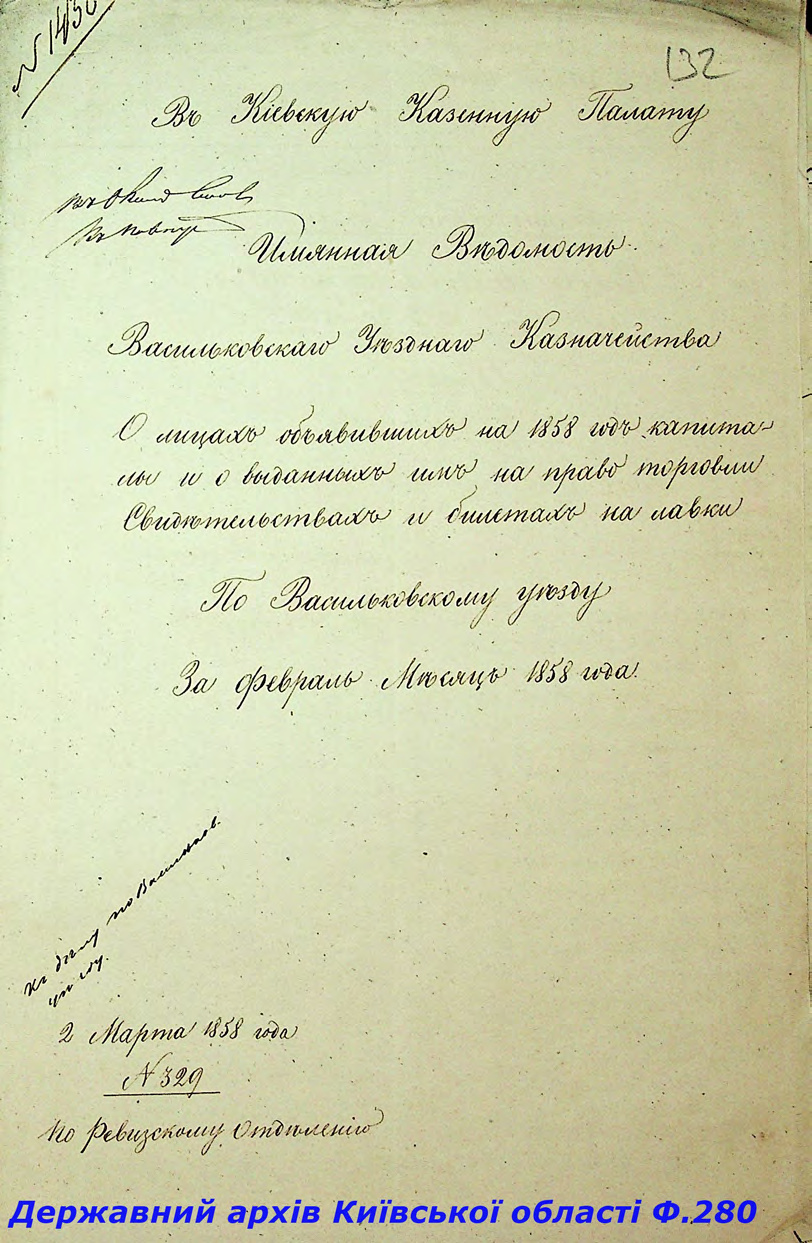 132
Въ Кіевскую Казенную Палату
Имянная Вѣдомость
Васильковскаго Уѣзднаго Казначейства
О лицахъ объявившихъ на 1858 годъ капита-
лы и о выданныхъ имъ на право торговли
Свидѣтельствахъ и билетахъ на лавки
По Васильковскому уѣзду
За февраль Мѣсяцъ 1858 года.
къ дѣлу по Васильков.
2 Марта 1858 года
N 329
По Ревизскому Отдѣленію
Державний архів Київської області Ф.280